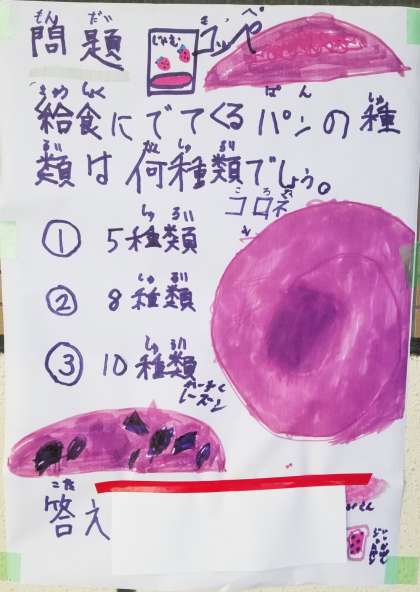 問題
じゃむ
コッペ
給食にでてくるパンの種
類は何種類でしょう。
コロネ
① 5種類
② 8種類
③ 10種類
レーズン
答え